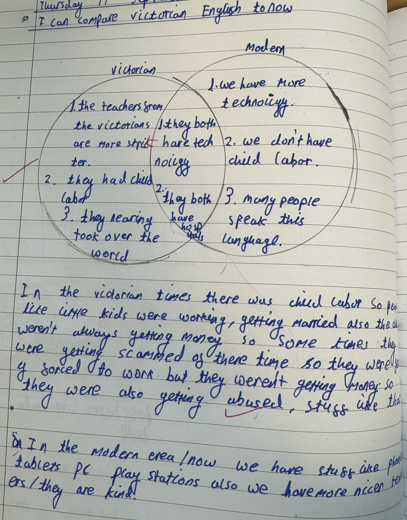 Thursday
I can compare victorian English to now
Modern
victorian
1. we have more
technoligy.
1. the teachers from
the victorians
are more strict
ter.
1. they both
have tech
noligy
2. we don't have
child labor.
2. they had child
labor
2.
they both
have
3. many people
speak this
language.
3. they nearing
took over the
world
In the victorian times there was child labor so
like little kids were working, getting married also the
weren't always getting money so some times they
were getting scammed of there time so they were
forced to work but they weren't getting money so
they were also getting abused, stuff like that
In the modern erea/now we have stuff like
tablets pc play stations also we have more nicer
ers/they are kind